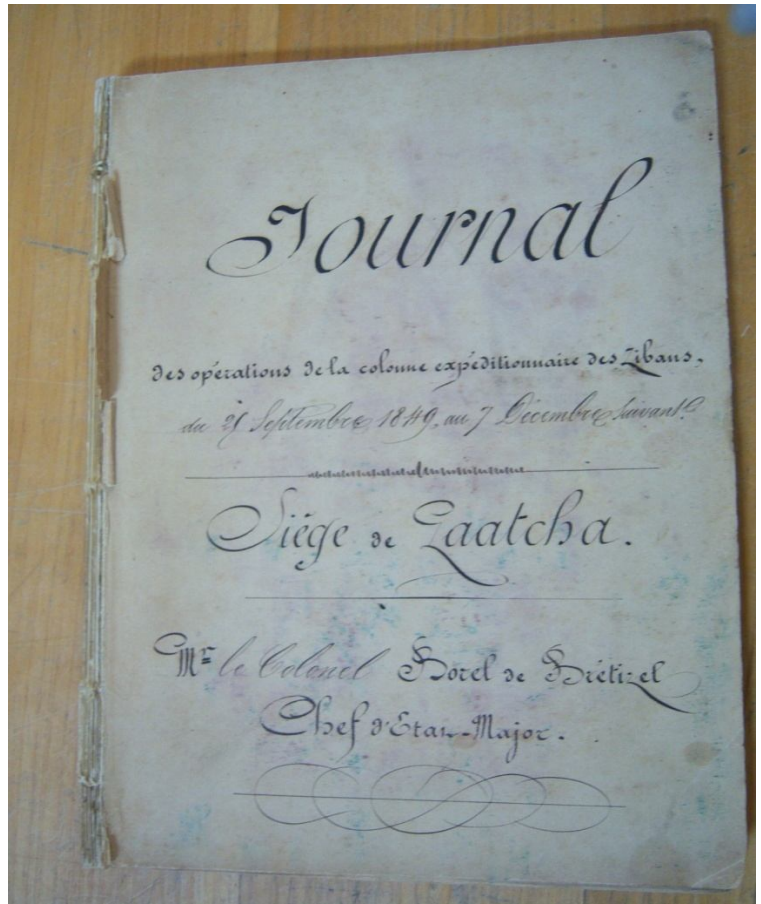 Journal
des opérations de la colonne expéditionnaire des Zibans.
du 21 Septembre 1849, au 7 Décembre suivant.
Siége de Zaatcha.
Mr le Colonel Borel de Brétizel
Chef d'Etat-Major.